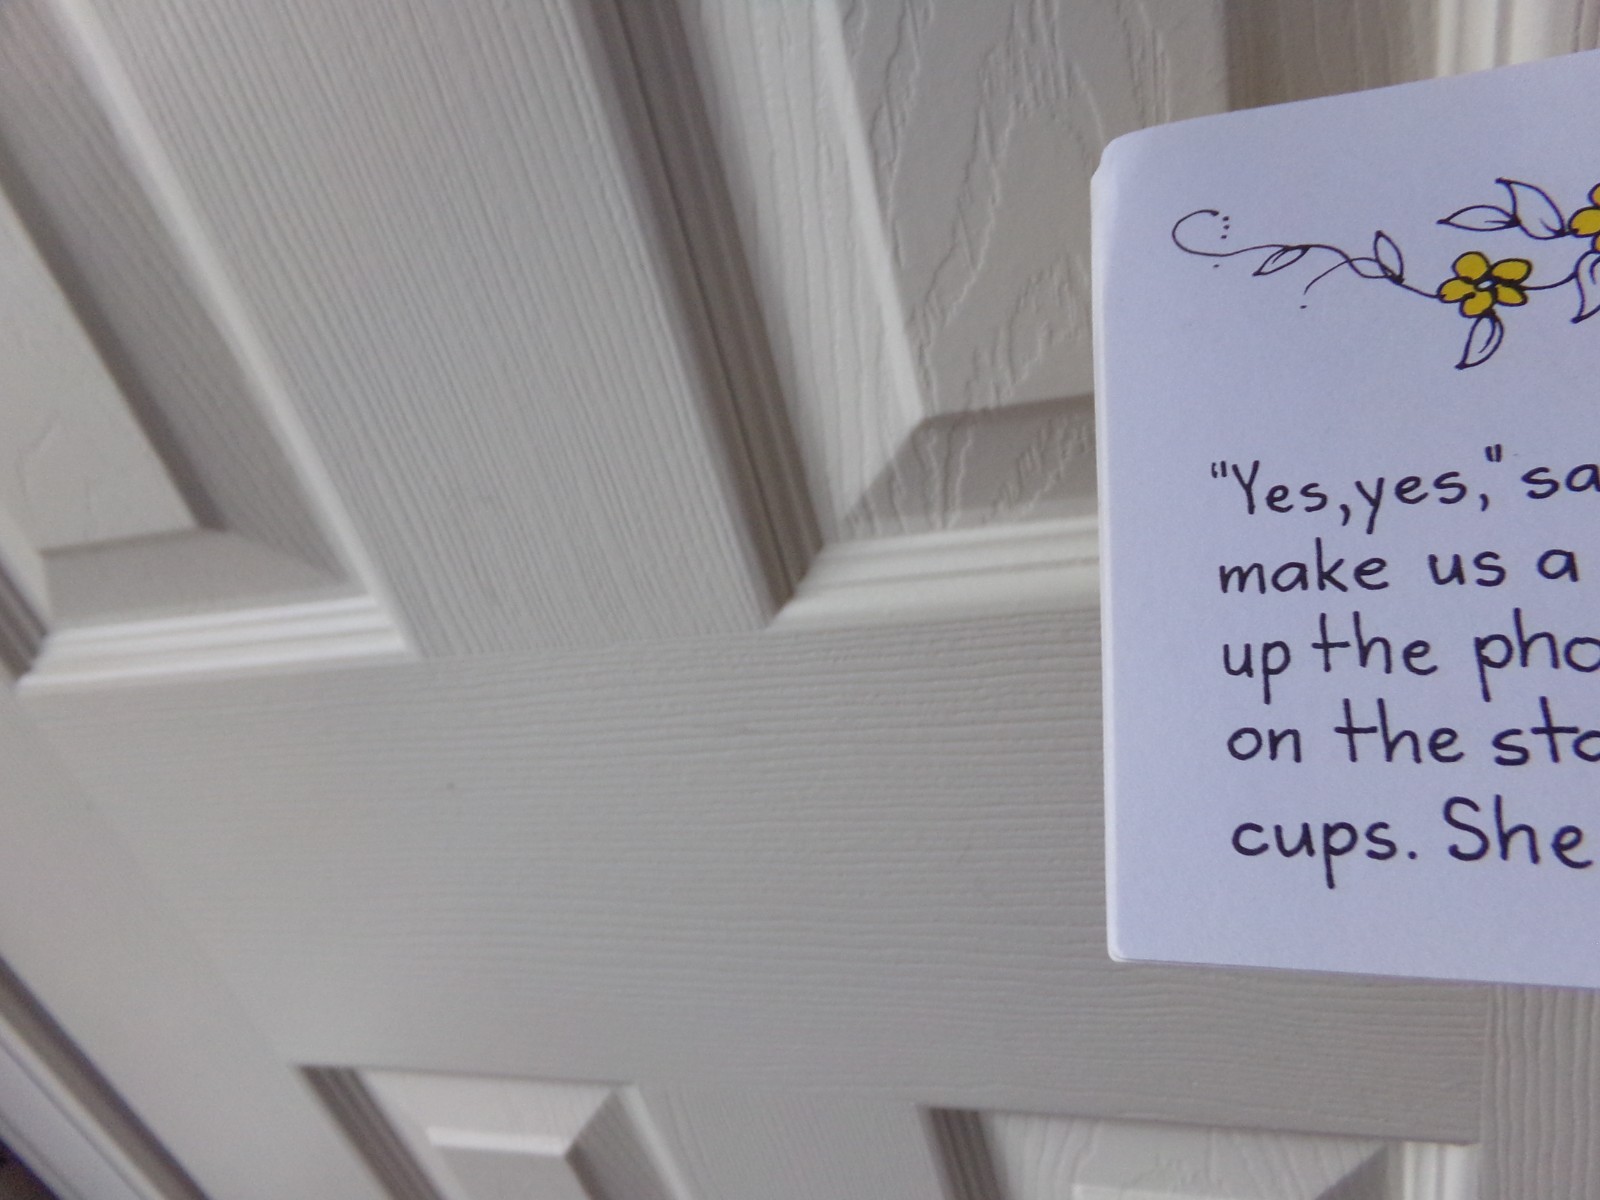 "Yes, yes," sa
make us a
up the pho
on the sto
cups. She